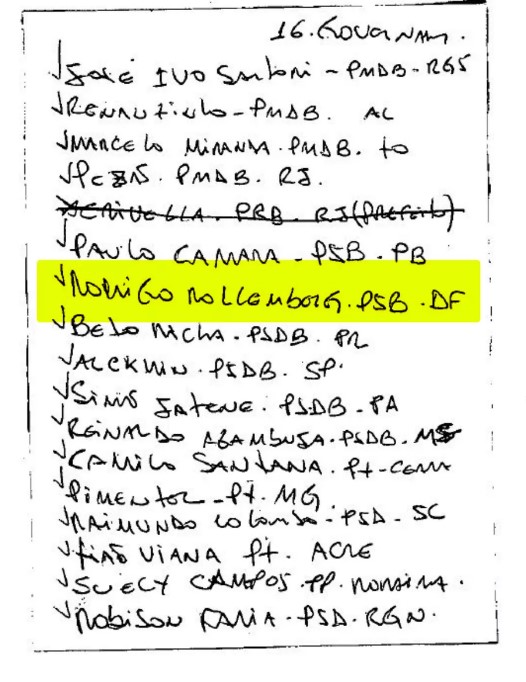 16. GOVERNAM.
√JOSÉ IVO SARTORI - PMDB - RGS
√RENANZINHO - PMDB. AL
√MARCELO MIRANDA. PMDB. TO
√PEZÃO. PMDB. RJ.
√CRIVELLA. PRB. RJ (PREFEITO)
√PAULO CAMARA - PSB. PB
√RODRIGO ROLLEMBERG. PSB. DF
√BETO RICHA. PSDB. PR
√ALCKMIN. PSDB. SP.
√SIMÃO JATENE. PSDB - PA
√REINALDO AZAMBUJA. PSDB. MS
√CAMILO SANTANA. PT - CEARA
√PIMENTEL - PT. MG
√RAIMUNDO COLOMBO. PSD - SC
√TIÃO VIANA PT. ACRE
√SUELY CAMPOS. PP. RORAIMA.
√ROBISON FARIA - PSD. RGN.